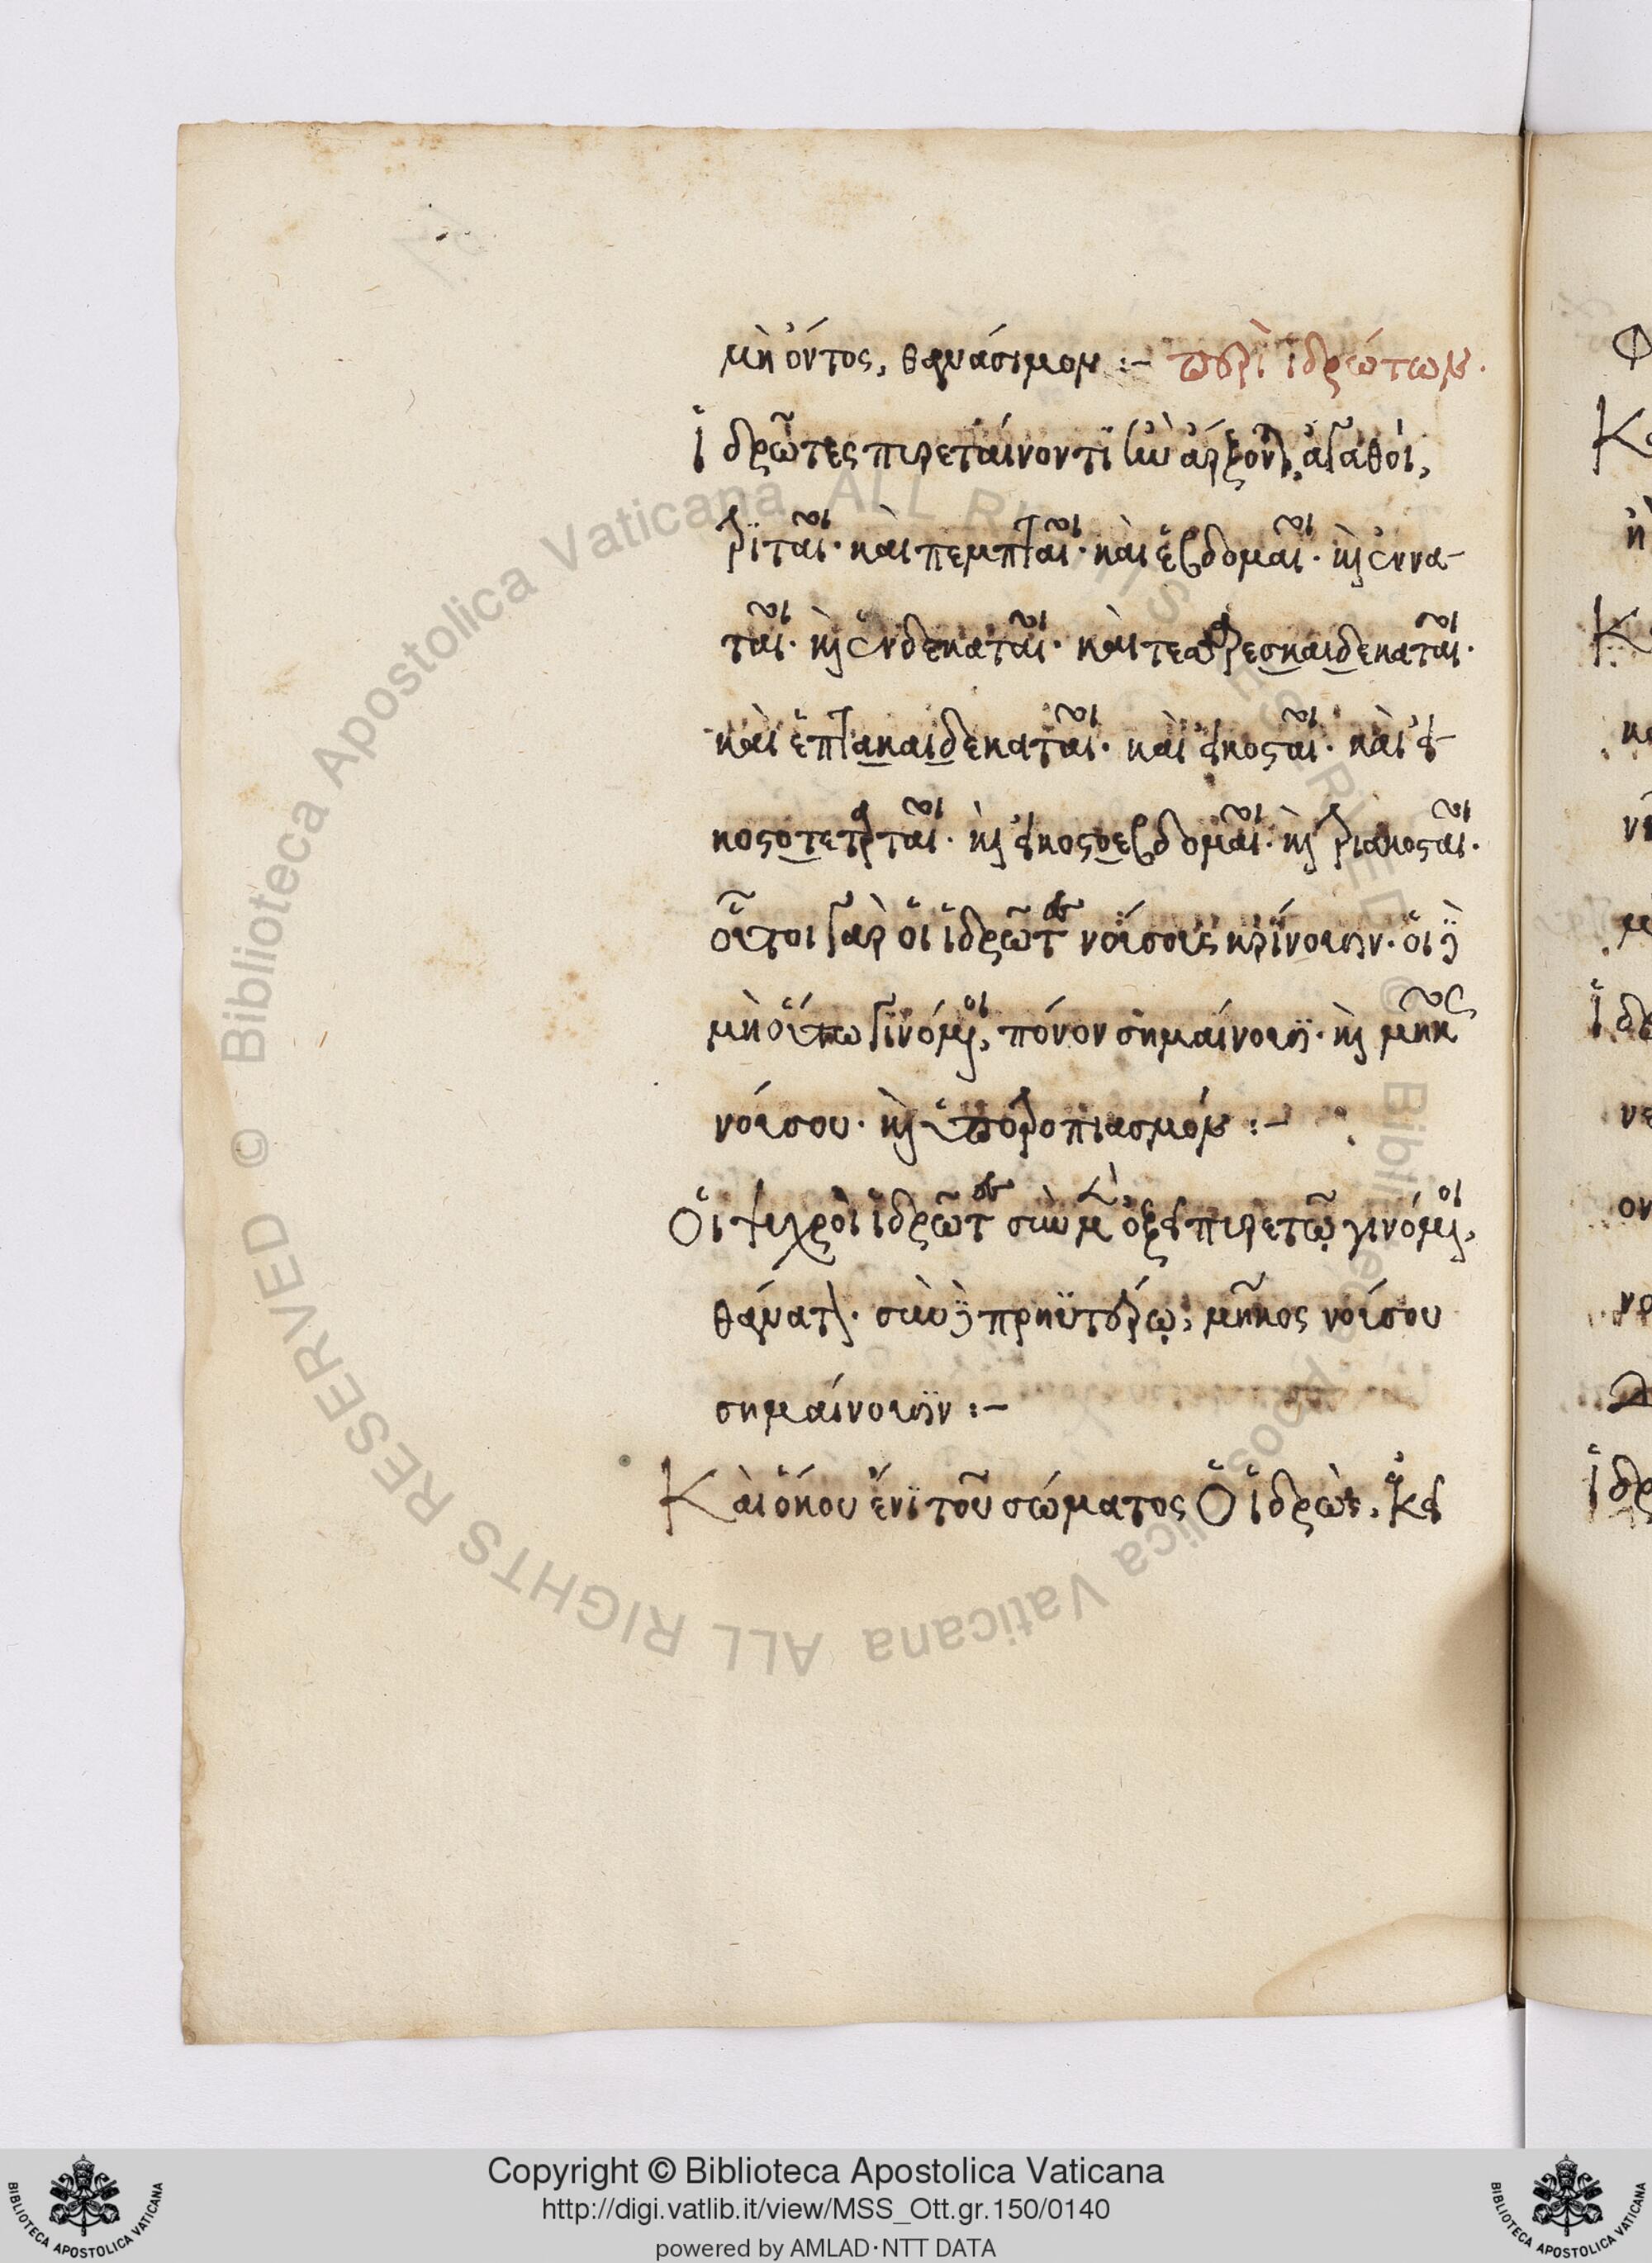 μὴ ὄντος, θανάσιμον :- περὶ ἱδρώτων.
Ἱδρῶτες πυρεταίνοντι ἢν ἄρξωνται, ἀγαθοὶ,
τριταῖοι· καὶ πεμπταῖοι· καὶ ἑβδομαῖοι· καὶ ἐννα-
ταῖοι· καὶ ἑνδεκαταῖοι· καὶ τεσσαρεσκαιδεκαταῖοι·
καὶ ἑπτακαιδεκαταῖοι· καὶ εἰκοσταῖοι· καὶ εἰ-
κοστοτεταρταῖοι· καὶ εἰκοστοεβδομαῖοι· καὶ τριακοσταῖοι·
οὗτοι γὰρ οἱ ἱδρῶτες νούσους κρίνουσιν· οἱ δὲ
μὴ οὕτω γινόμενοι, πόνον σημαίνουσι· καὶ μῆκος
νούσου· καὶ ὑποτροπιασμόν :-
Οἱ ψυχροὶ ἱδρῶτες σὺν μὲν ὀξεῖ πυρετῷ γινόμενοι,
θάνατον· σὺν δὲ πρηϋτέρῳ, μῆκος νούσου
σημαίνουσιν :-
Καὶ ὅκου ἔνι τοῦ σώματος ὁ ἱδρὼς, ἐκεῖ
Copyright © Biblioteca Apostolica Vaticana
http://digi.vatlib.it/view/MSS_Ott.gr.150/0140
powered by AMLAD·NTT DATA